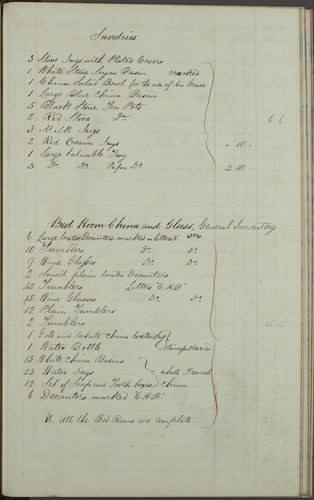 Sundries
3 Stone Jugs with Plated Covers
1 White Stone Sugar Basin cracked
1 China Salad Bowl for the use of the House
1 Large Blue China Basin
5 Black Stone Tea Pots
2 Red Stone Do 6 6
3 Milk Jugs
2 Red Cream Jugs " 10 -
1 Large Valuable Tray
3 Do Do Paper Do 2 10 -
Bed Room China and Glass, General Inventory
6 Large Water Decanters marked in letters &
10 Tumblers Do Do
9 Wine Glasses Do Do
2 Small plain water Decanters
40 Tumblers Letters "C.H.B"
15 Wine Glasses Do Do
12 Plain Tumblers
7 Tumblers
1 Gold and White China Water Jug 15 15 -
1 Water Bottle
13 White China Basins
23 Water Jugs white French
12 Set of Soap and Tooth boxes China
6 Decanters marked C.H.B
N. All the Bed Rooms are complete